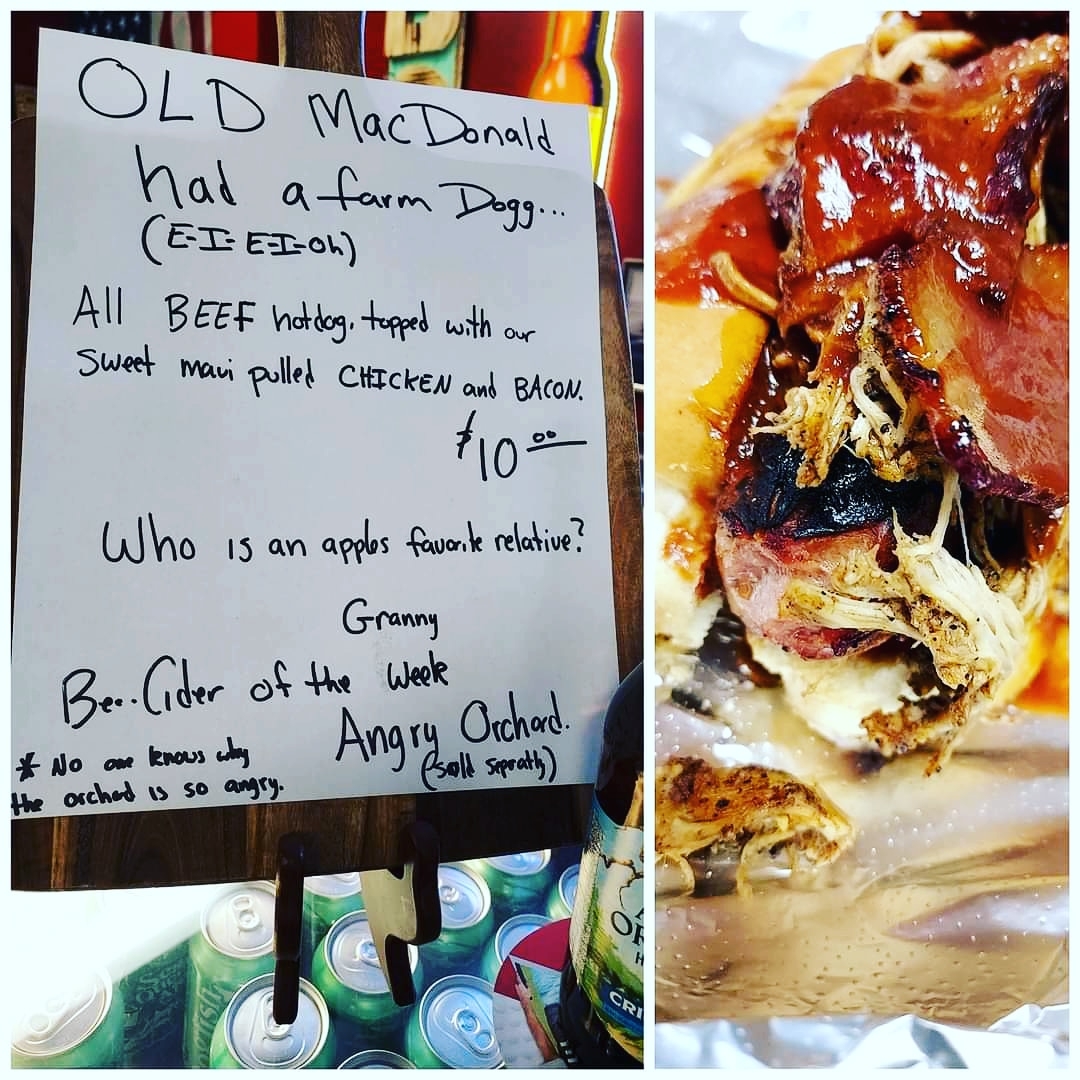 OLD MacDonald
had a farm Dogg...
(E-I-E-I-Oh)
All BEEF hotdog, topped with our
Sweet maui pulled CHICKEN and BACON.
$10.00
Who is an apples favorite relative?
Granny
Bee..Cider of the Week
Angry Orchard.
(sold sepratly)
* No one knows why
the orchard is so angry.
OR
CRI